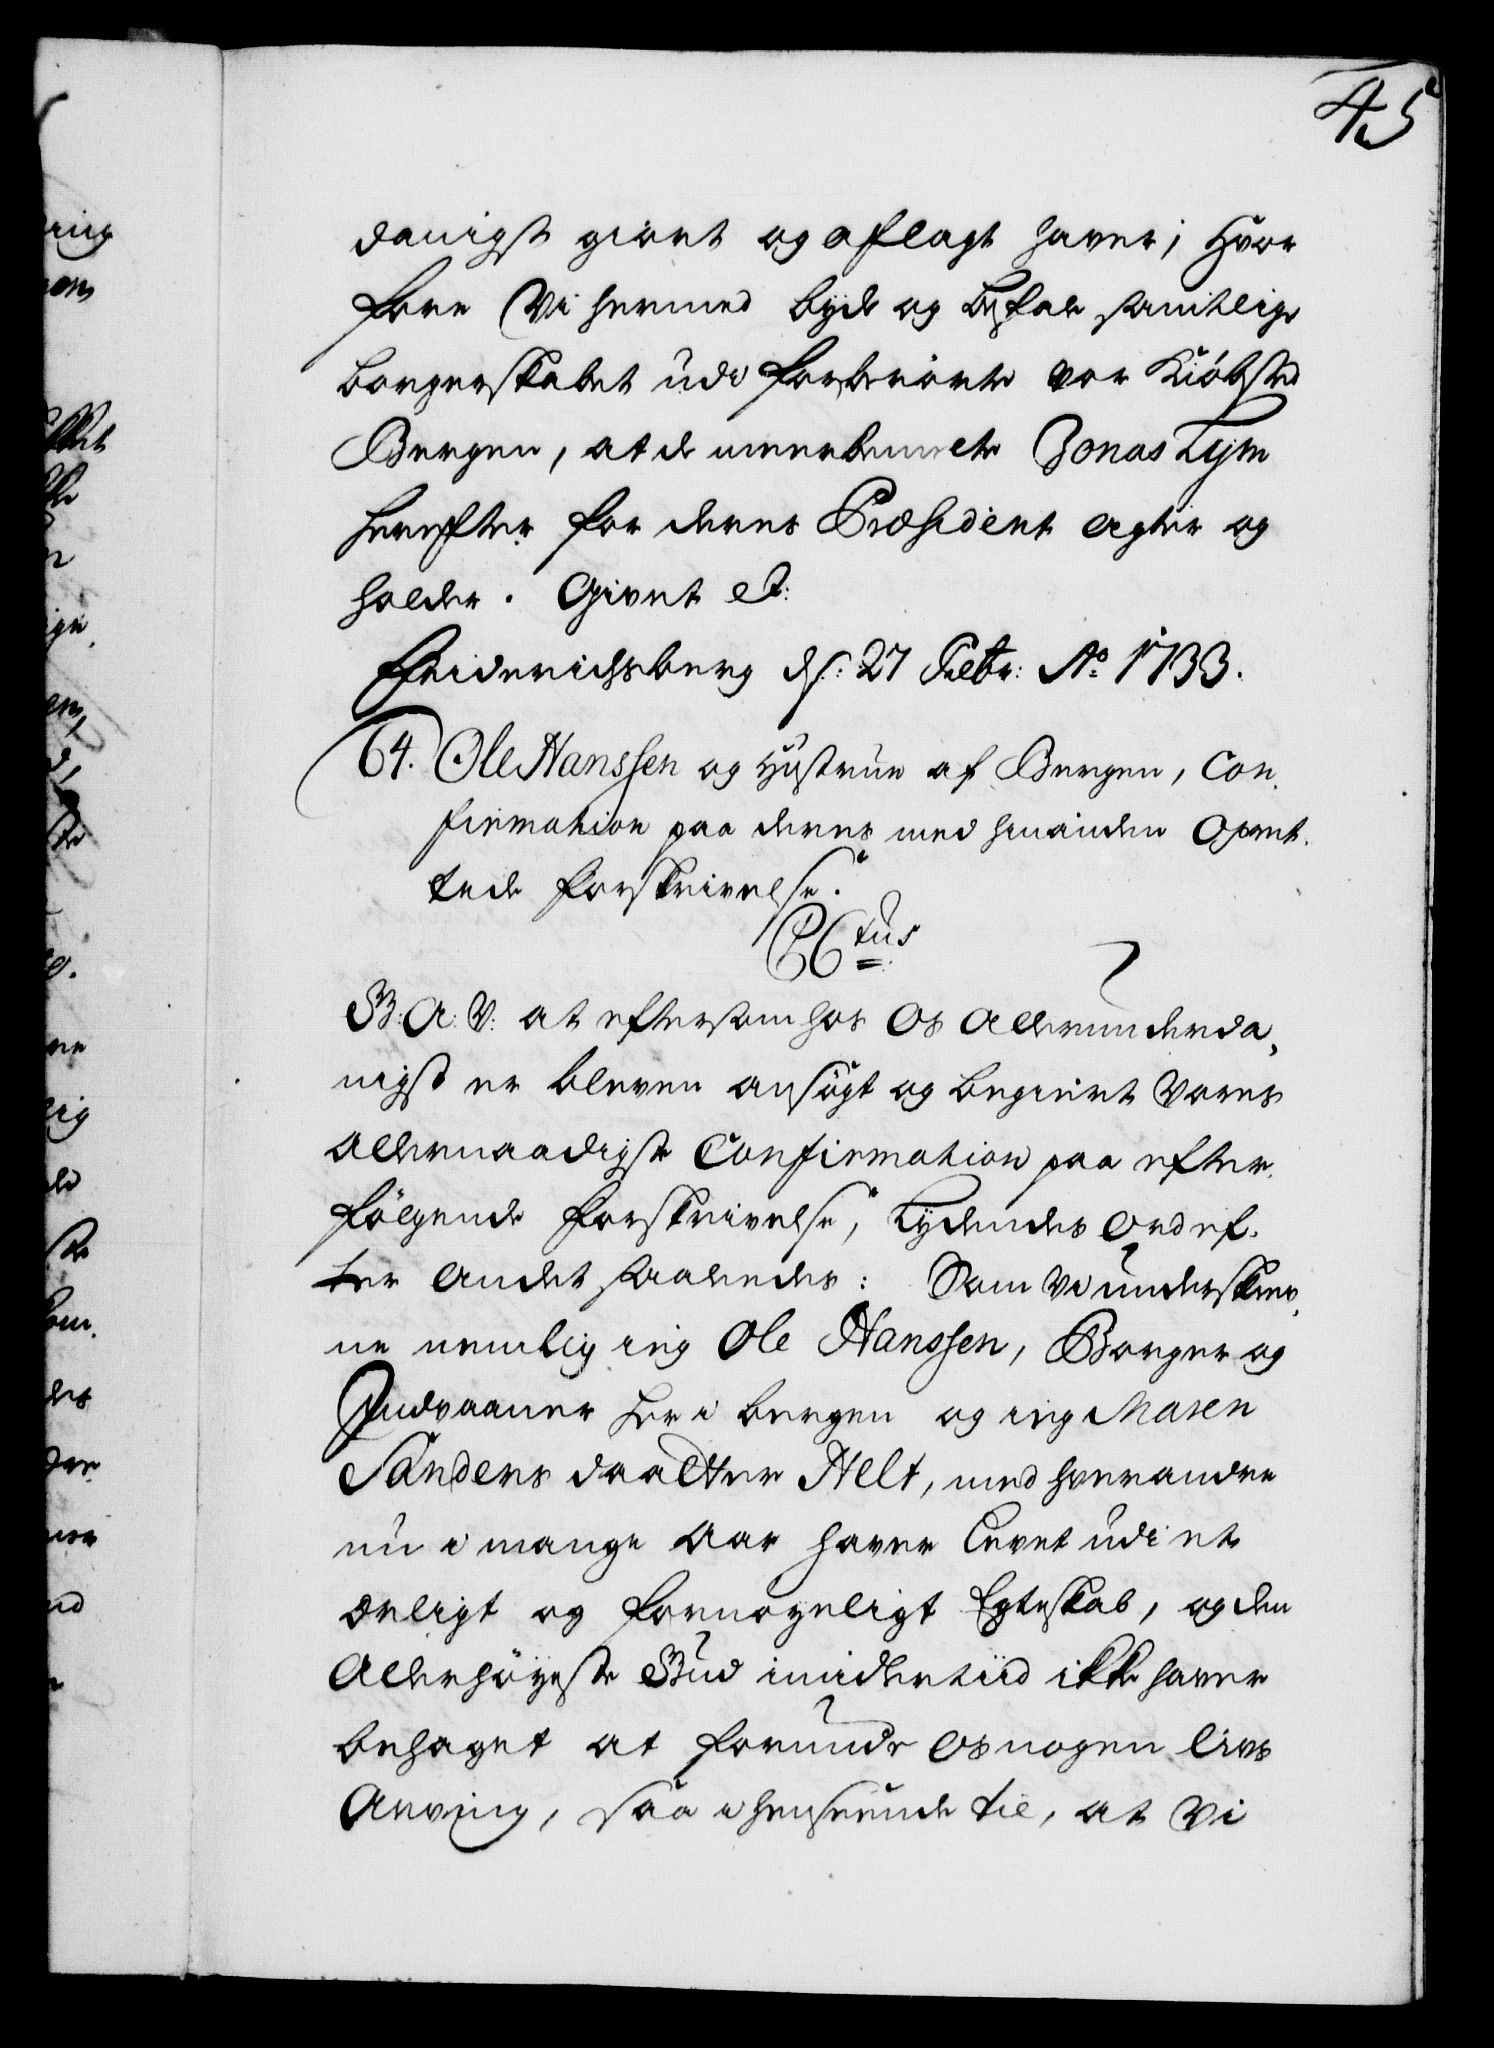 45
danigst giort og aflagt haver; Hvor
fore Vi hermed byde og befale samtlige
borgerskabet udi forberörte vor Kiöbsted
Bergen, at de meerbemelte Jonas Lijm
herefter for deres Præsident agter og
holder. Givet et:
Friderichsberg d: 27 Febr: Ao 1733.
64. Ole Hanssen og Hustrue af Bergen, Con
firmation paa deres med hinanden Opret
tede forskrivelse.
C6tus
G: A: V: at eftersom hos Os Allerunderda
nigst er bleven ansögt og begiert Vores
allernaadigste Confirmation paa efter
fölgende forskrivelse, Lydendes Ord ef
ter Andet saaledes: Som Vi underskrev
ne nemlig ieg Ole Hanssen, Borger og
Indvaaner her i bergen og ieg Maren
Sanders daatter Helt, med hverandre
nu i mange Aar haver levet udi et
ærligt og fornøyeligt Egteskab, og den
Allerhöyeste Gud imidlertiid ikke haver
behaget at forunde Os nogen livs
Arving, saa i henseende til, at Vi